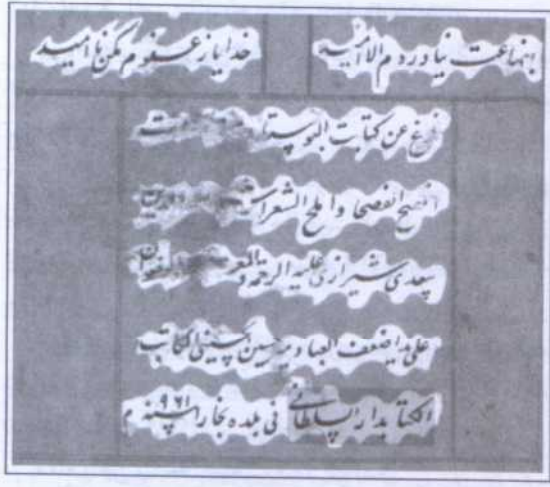 بضاعت نیاوردم الا امید خدایا ز عفوم مکن ناامید
فرغ عن کتابت البوستان
افصح الفصحا و املح الشعرا
سعدی شیرازی علیه الرحمة و
علی ید اضعف العباد میر حسین الحسینی الکاتب
الکتابدار السلطانی فی بلده بخارا سنه ۹۶۱ م